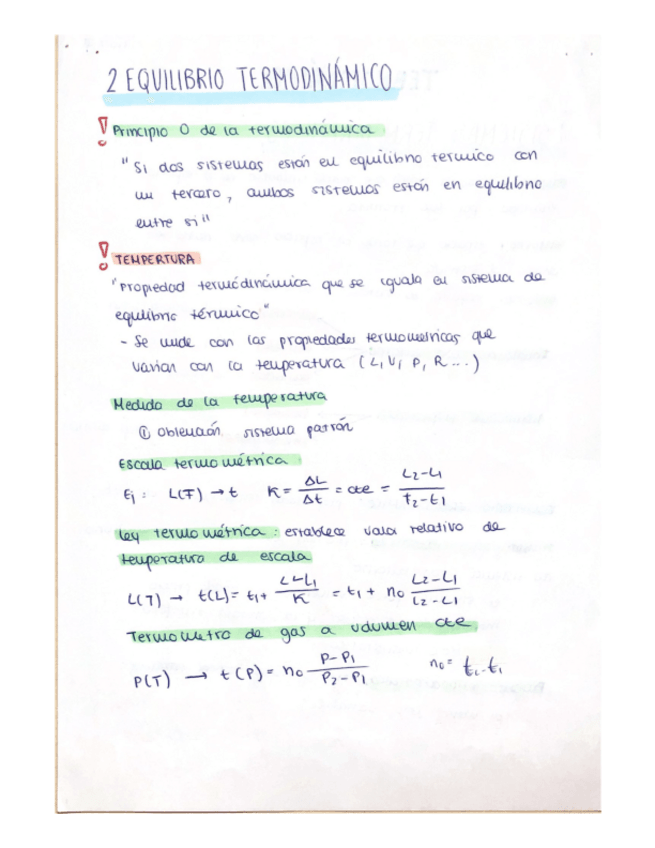 2 EQUILIBRIO TERMODINÁMICO
! Principio 0 de la termodinámica
"Si dos sistemas están en equilibrio termico con
un tercero, ambos sistemas están en equilibrio
entre si"
! TEMPERTURA
"Propiedad termódinámica que se iguala en sistema de
equilibrio térmico"
- Se mide con las propiedades termometricas que
varian con la temperatura (L, V, P, R...)
Medida de la temperatura
① Obtención sistema patrón
Escala termométrica
Ej: L(T) → t K = ΔL/Δt = cte = L2-L1/t2-t1
Ley termométrica: establece valor relativo de
temperatura de escala
L(T) → t(L) = t1 + L-L1/K = t1 + n0 L2-L1/L2-L1
Termometro de gas a volumen cte
P(T) → t(P) = n0 P-P1/P2-P1 n0 = t2-t1